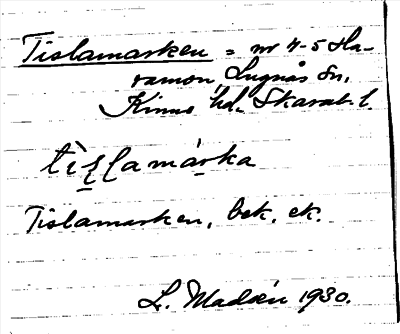 Tislamarken = nr 4-5 Ha-
ramon, Lugnås sn,
Kinne hd. Skarab. l.
tìs̱ḻamárka
Tislamarken, bek. ek.
L. Madén 1930.